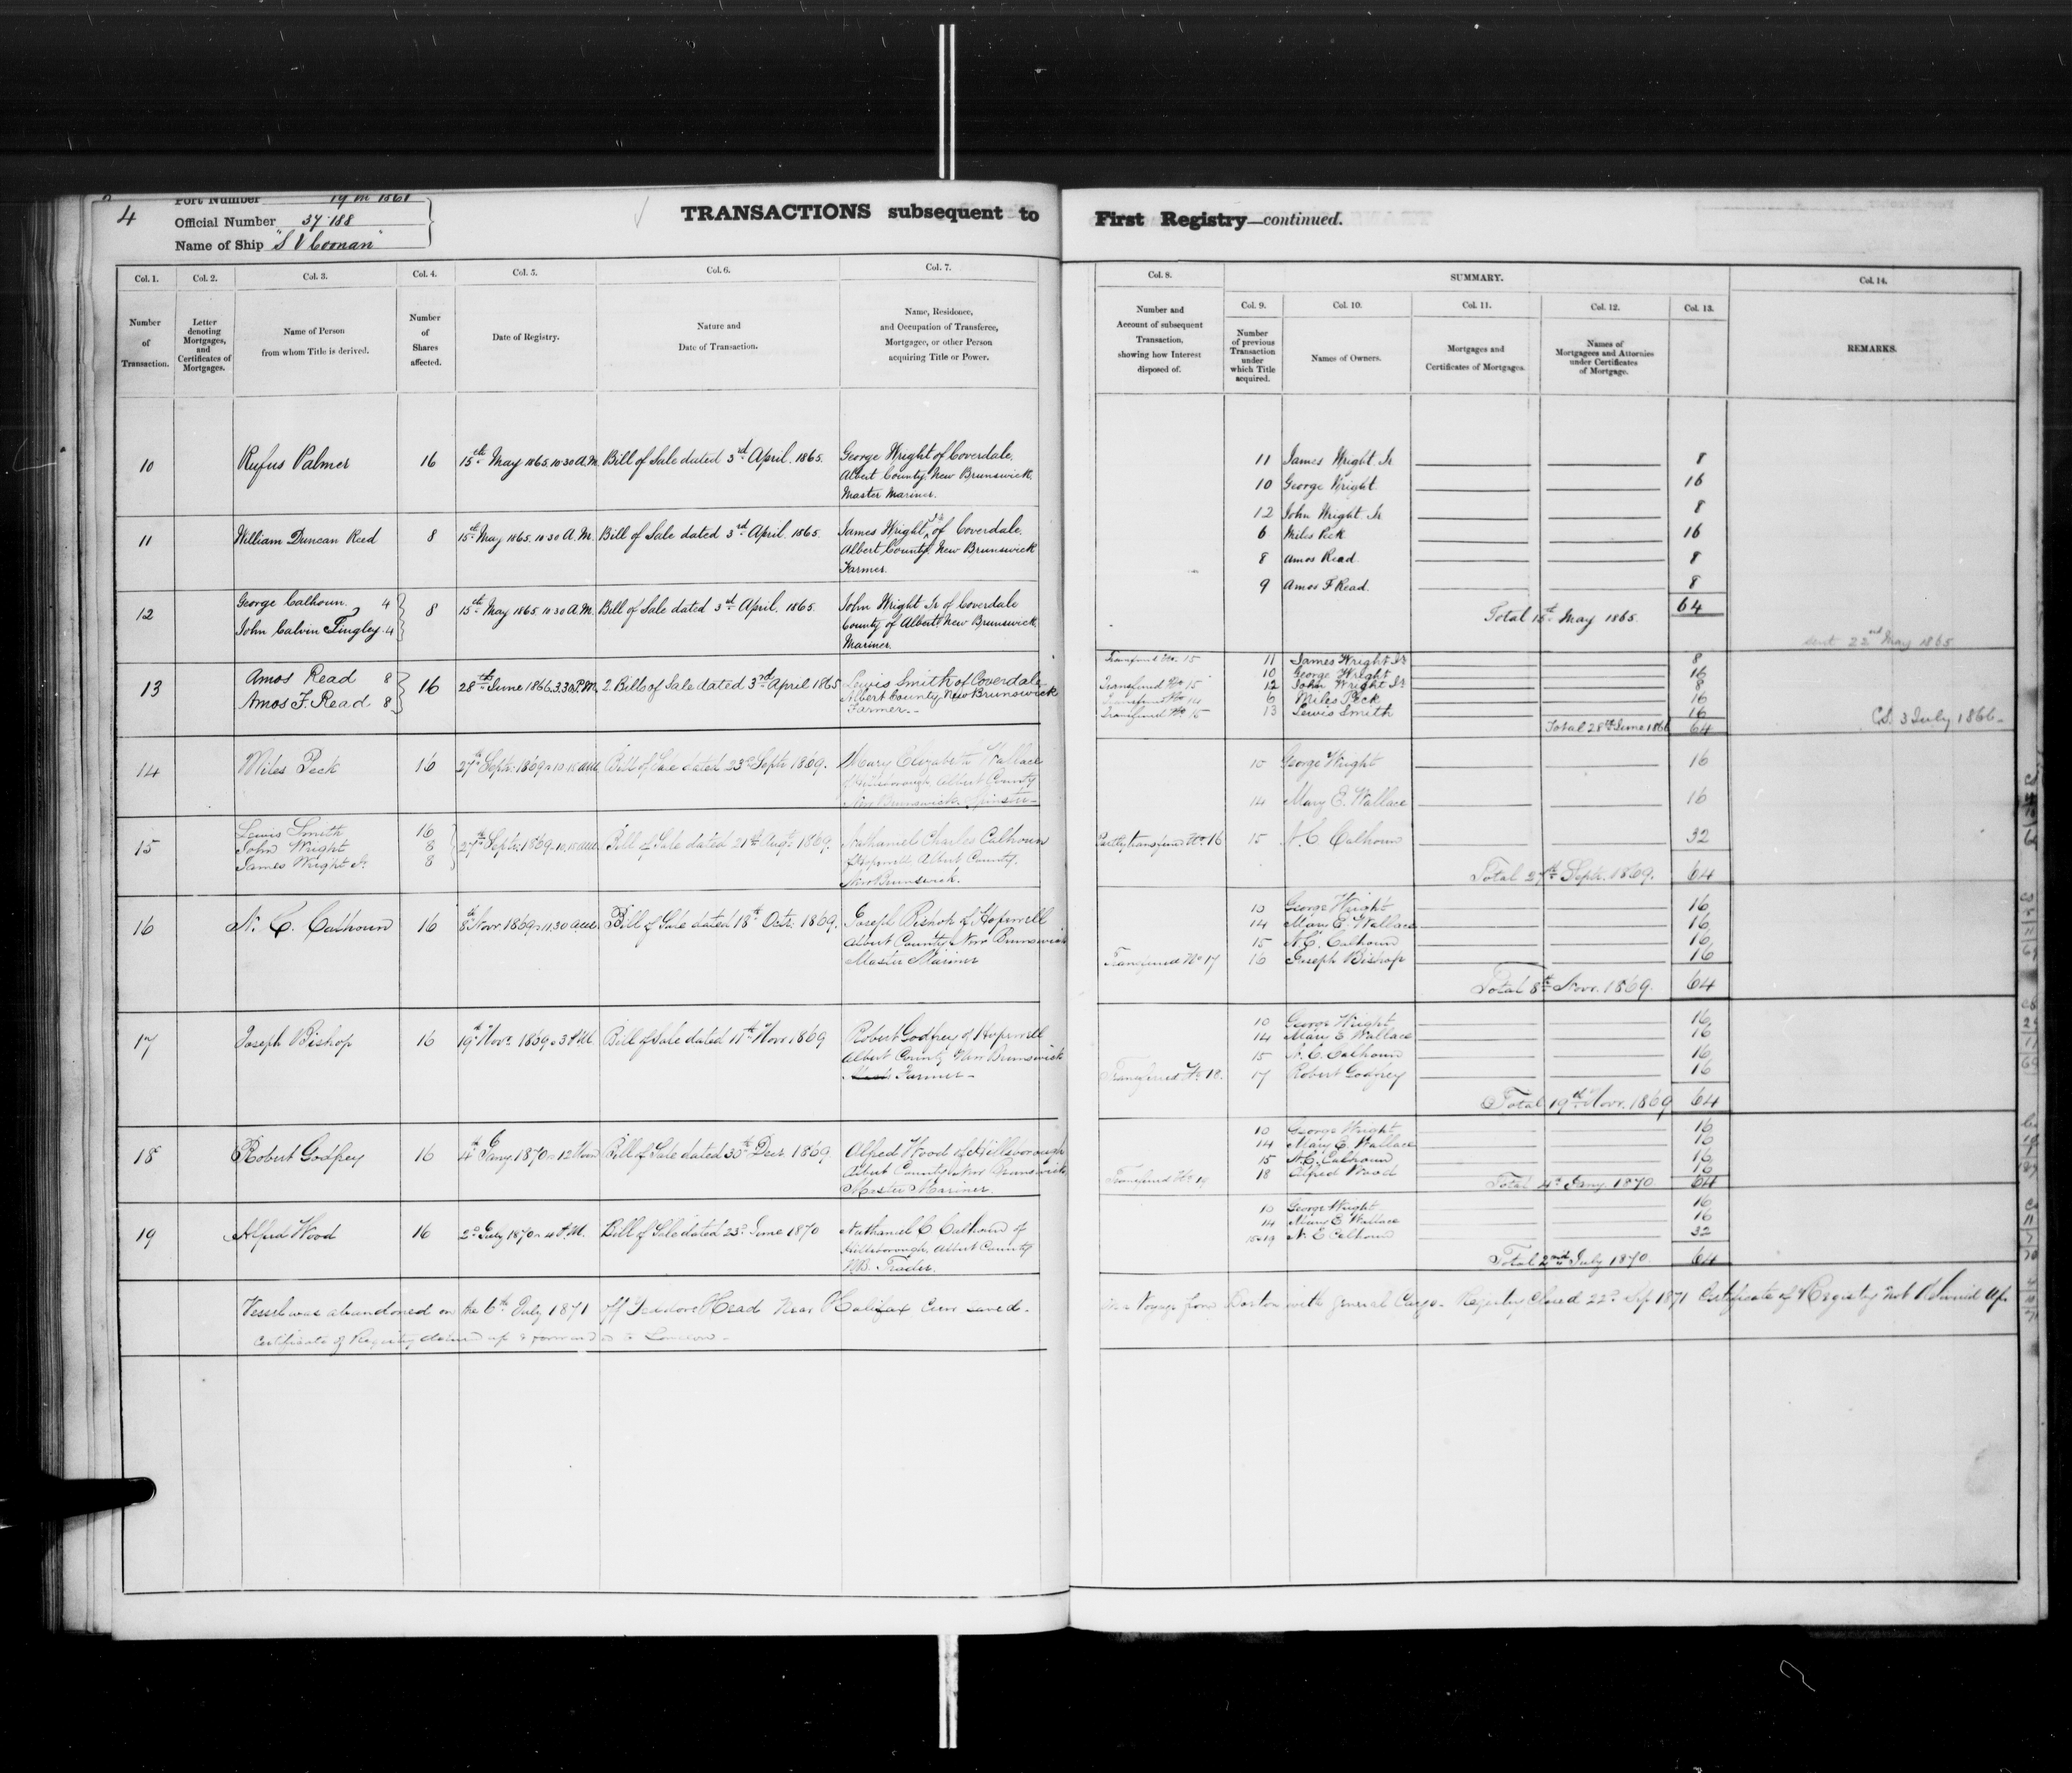 4
Port Number 19 in 1861
Official Number 37188
Name of Ship "S V Coonan"
TRANSACTIONS subsequent to First Registry—continued.
Col. 1. Col. 2. Col. 3. Col. 4. Col. 5. Col. 6. Col. 7.
Number of Transaction.
Letter denoting Mortgages, and Certificates of Mortgages.
Name of Person from whom Title is derived.
Number of Shares affected.
Date of Registry.
Nature and Date of Transaction.
Name, Residence, and Occupation of Transferee, Mortgagee, or other Person acquiring Title or Power.
10 Rufus Palmer 16 15th May 1865. 10.30 A.M. Bill of Sale dated 3rd April. 1865. George Wright of Coverdale.
Albert County. New Brunswick.
Master Mariner.
11 William Duncan Reed 8 15th May 1865. 10 30 A.M. Bill of Sale dated 3rd April. 1865. James Wright Jr of Coverdale.
Albert County. New Brunswick
Farmer.
12 George Calhoun. 4
John Calvin Lingley. 4
8 15th May 1865. 10 30 A.M. Bill of Sale dated 3rd April. 1865. John Wright Jr of Coverdale
County of Albert New Brunswick
Mariner.
13 Amos Read 8
Amos F. Read 8
16 28th June 1866. 3.30 P.M. 2. Bills of Sale dated 3rd April 1865 Lewis Smith of Coverdale
Albert County, New Brunswick
Farmer.
14 Miles Peck 16 27th Septr. 1869 Bill of Sale dated 23rd Septr 1869. Mary Elizabeth Wallace
of Hillsborough, Albert County
New Brunswick. Spinster
15 Lewis Smith 16
John Wright 8
James Wright Jr. 8
27th Septr. 1869 Bill of Sale dated 21st Augt. 1869. Nathaniel Charles Calhoun
of Hopewell Albert County.
New Brunswick.
16 N. C. Calhoun 16 8th Novr. 1869 11.30 a.m. Bill of Sale dated 18th Octr. 1869. Joseph Bishop of Hopewell
Albert County New Brunswick
Master Mariner
17 Joseph Bishop 16 19th Novr. 1869 3 P.M. Bill of Sale dated 11th Novr 1869 Robert Godfrey of Hopewell
Albert County New Brunswick
Farmer
18 Robert Godfrey 16 4th Jany. 1870 12 Noon Bill of Sale dated 30th Decr 1869 Alfred Wood of Hillsborough
Albert County New Brunswick
Master Mariner.
19 Alfred Wood 16 2d July 1870 4 P.M. Bill of Sale dated 23d June 1870 Nathaniel C Calhoun of
Hillsborough, Albert County
N.B. Trader.
Vessel was abandoned on the 6th July 1871 off Head Near Halifax Crew saved. on a Voyage from Boston with General Cargo. Registry Closed 22d Sep 1871 Certificate of Registry not delivered up.
Certificate of Registry up & forwarded to London
Col. 8. SUMMARY. Col. 14.
Col. 9. Col. 10. Col. 11. Col. 12. Col. 13.
Number and Account of subsequent Transaction, showing how Interest disposed of.
Number of previous Transaction under which Title acquired.
Names of Owners.
Mortgages and Certificates of Mortgages.
Names of Mortgagees and Attornies under Certificates of Mortgage.
REMARKS.
11 James Wright Jr 8
10 George Wright. 16
12 John Wright Jr 8
6 Miles Peck 16
8 Amos Read. 8
9 Amos F Read. 8
Total 15th May 1865. 64
sent 22nd May 1865
Transferred No. 15 11 James Wright Jr 8
10 George Wright 16
Transferred No 15 12 John Wright Jr 8
Transferred No 14 6 Miles Peck 16
Transferred No. 15 13 Lewis Smith 16
Total 28th June 1866 64
C.S. 3 July 1866
10 George Wright 16
14 Mary E. Wallace 16
Partly transferred No. 16 15 N. C Calhoun 32
Total 27th Septr. 1869. 64
10 George Wright 16
14 Mary E. Wallace 16
15 N. C. Calhoun 16
Transferred No 17 16 Joseph Bishop 16
Total 8th Novr. 1869. 64
10 George Wright 16
14 Mary E Wallace 16
15 N. C. Calhoun 16
Transferred No. 18. 17 Robert Godfrey 16
Total 19th Novr. 1869 64
10 George Wright 16
14 Mary E. Wallace 16
15 N. C. Calhoun 16
Transferred No 19 18 Alfred Wood 16
Total 4th Jany 1870 64
10 George Wright 16
14 Mary E Wallace 16
15 & 19 N. C Calhoun 32
Total 2nd July 1870 64